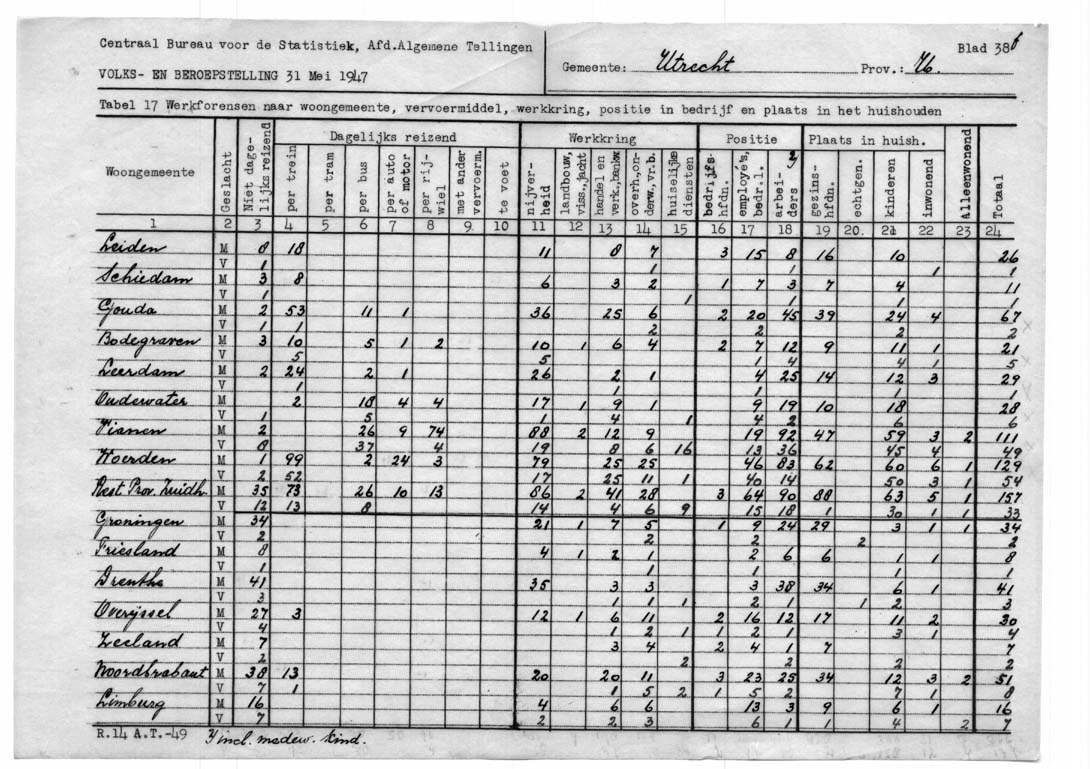 Centraal Bureau voor de Statistiek, Afd.Algemene Tellingen
VOLKS- EN BEROEPSTELLING 31 Mei 1947
Gemeente: Utrecht Prov.: Ut. Blad 38b
Tabel 17 Werkforensen naar woongemeente, vervoermiddel, werkkring, positie in bedrijf en plaats in het huishouden
Woongemeente Geslacht Niet dagelijks reizend Dagelijks reizend Werkkring Positie Plaats in huish. Alleenwonend Totaal
per trein per tram per bus per auto of motor per rijwiel met ander vervoerm. te voet nijverheid landbouw, viss., jacht handel en verk., bankw. overh., onderw., vr.b. huiselijke diensten bedrijfshfdn. employé's, bedr.l. arbeiders 2) gezinshfdn. echtgen. kinderen inwonend
1 2 3 4 5 6 7 8 9. 10 11 12 13 14 15 16 17 18 19 20. 21 22 23 24
Leiden M 8 18 11 8 7 3 15 8 16 10 26
V 1 1 1 1 1
Schiedam M 3 8 6 3 2 1 7 3 7 4 11
V 1 1 1 1 1
Gouda M 2 53 11 1 36 25 6 2 20 45 39 24 4 67
V 1 1 2 2 2 2
Bodegraven M 3 10 5 1 2 10 1 6 4 2 7 12 9 11 1 21
V 5 5 1 4 4 1 5
Leerdam M 2 24 2 1 26 2 1 4 25 14 12 3 29
V 1 1 1 1 1
Oudewater M 2 18 4 4 17 1 9 1 9 19 10 18 28
V 1 5 1 4 1 4 2 6 6
Vianen M 2 26 9 74 88 2 12 9 19 92 47 59 3 2 111
V 8 37 4 19 8 6 16 13 36 45 4 49
Woerden M 1 99 2 24 3 79 25 25 46 83 62 60 6 1 129
V 2 52 17 25 11 1 40 14 50 3 1 54
Rest Prov. Zuidh. M 35 73 26 10 13 86 2 41 28 3 64 90 88 63 5 1 157
V 12 13 8 14 4 6 9 15 18 1 30 1 1 33
Groningen M 34 21 1 7 5 1 9 24 29 3 1 1 34
V 2 2 2 2 2
Friesland M 8 4 1 2 1 2 6 6 1 1 8
V 1 1 1 1 1
Drenthe M 41 35 3 3 3 38 34 6 1 41
V 3 1 1 1 2 1 1 2 3
Overijssel M 27 3 12 1 6 11 2 16 12 17 11 2 30
V 4 1 2 1 1 2 1 3 1 4
Zeeland M 7 3 4 2 4 1 7 7
V 2 2 2 2 2
Noordbrabant M 38 13 20 20 11 3 23 25 34 12 3 2 51
V 7 1 1 5 2 1 5 2 7 1 8
Limburg M 16 4 6 6 13 3 9 6 1 16
V 7 2 2 3 6 1 1 4 2 7
R.14 A.T.-49 2) incl. medew. kind.